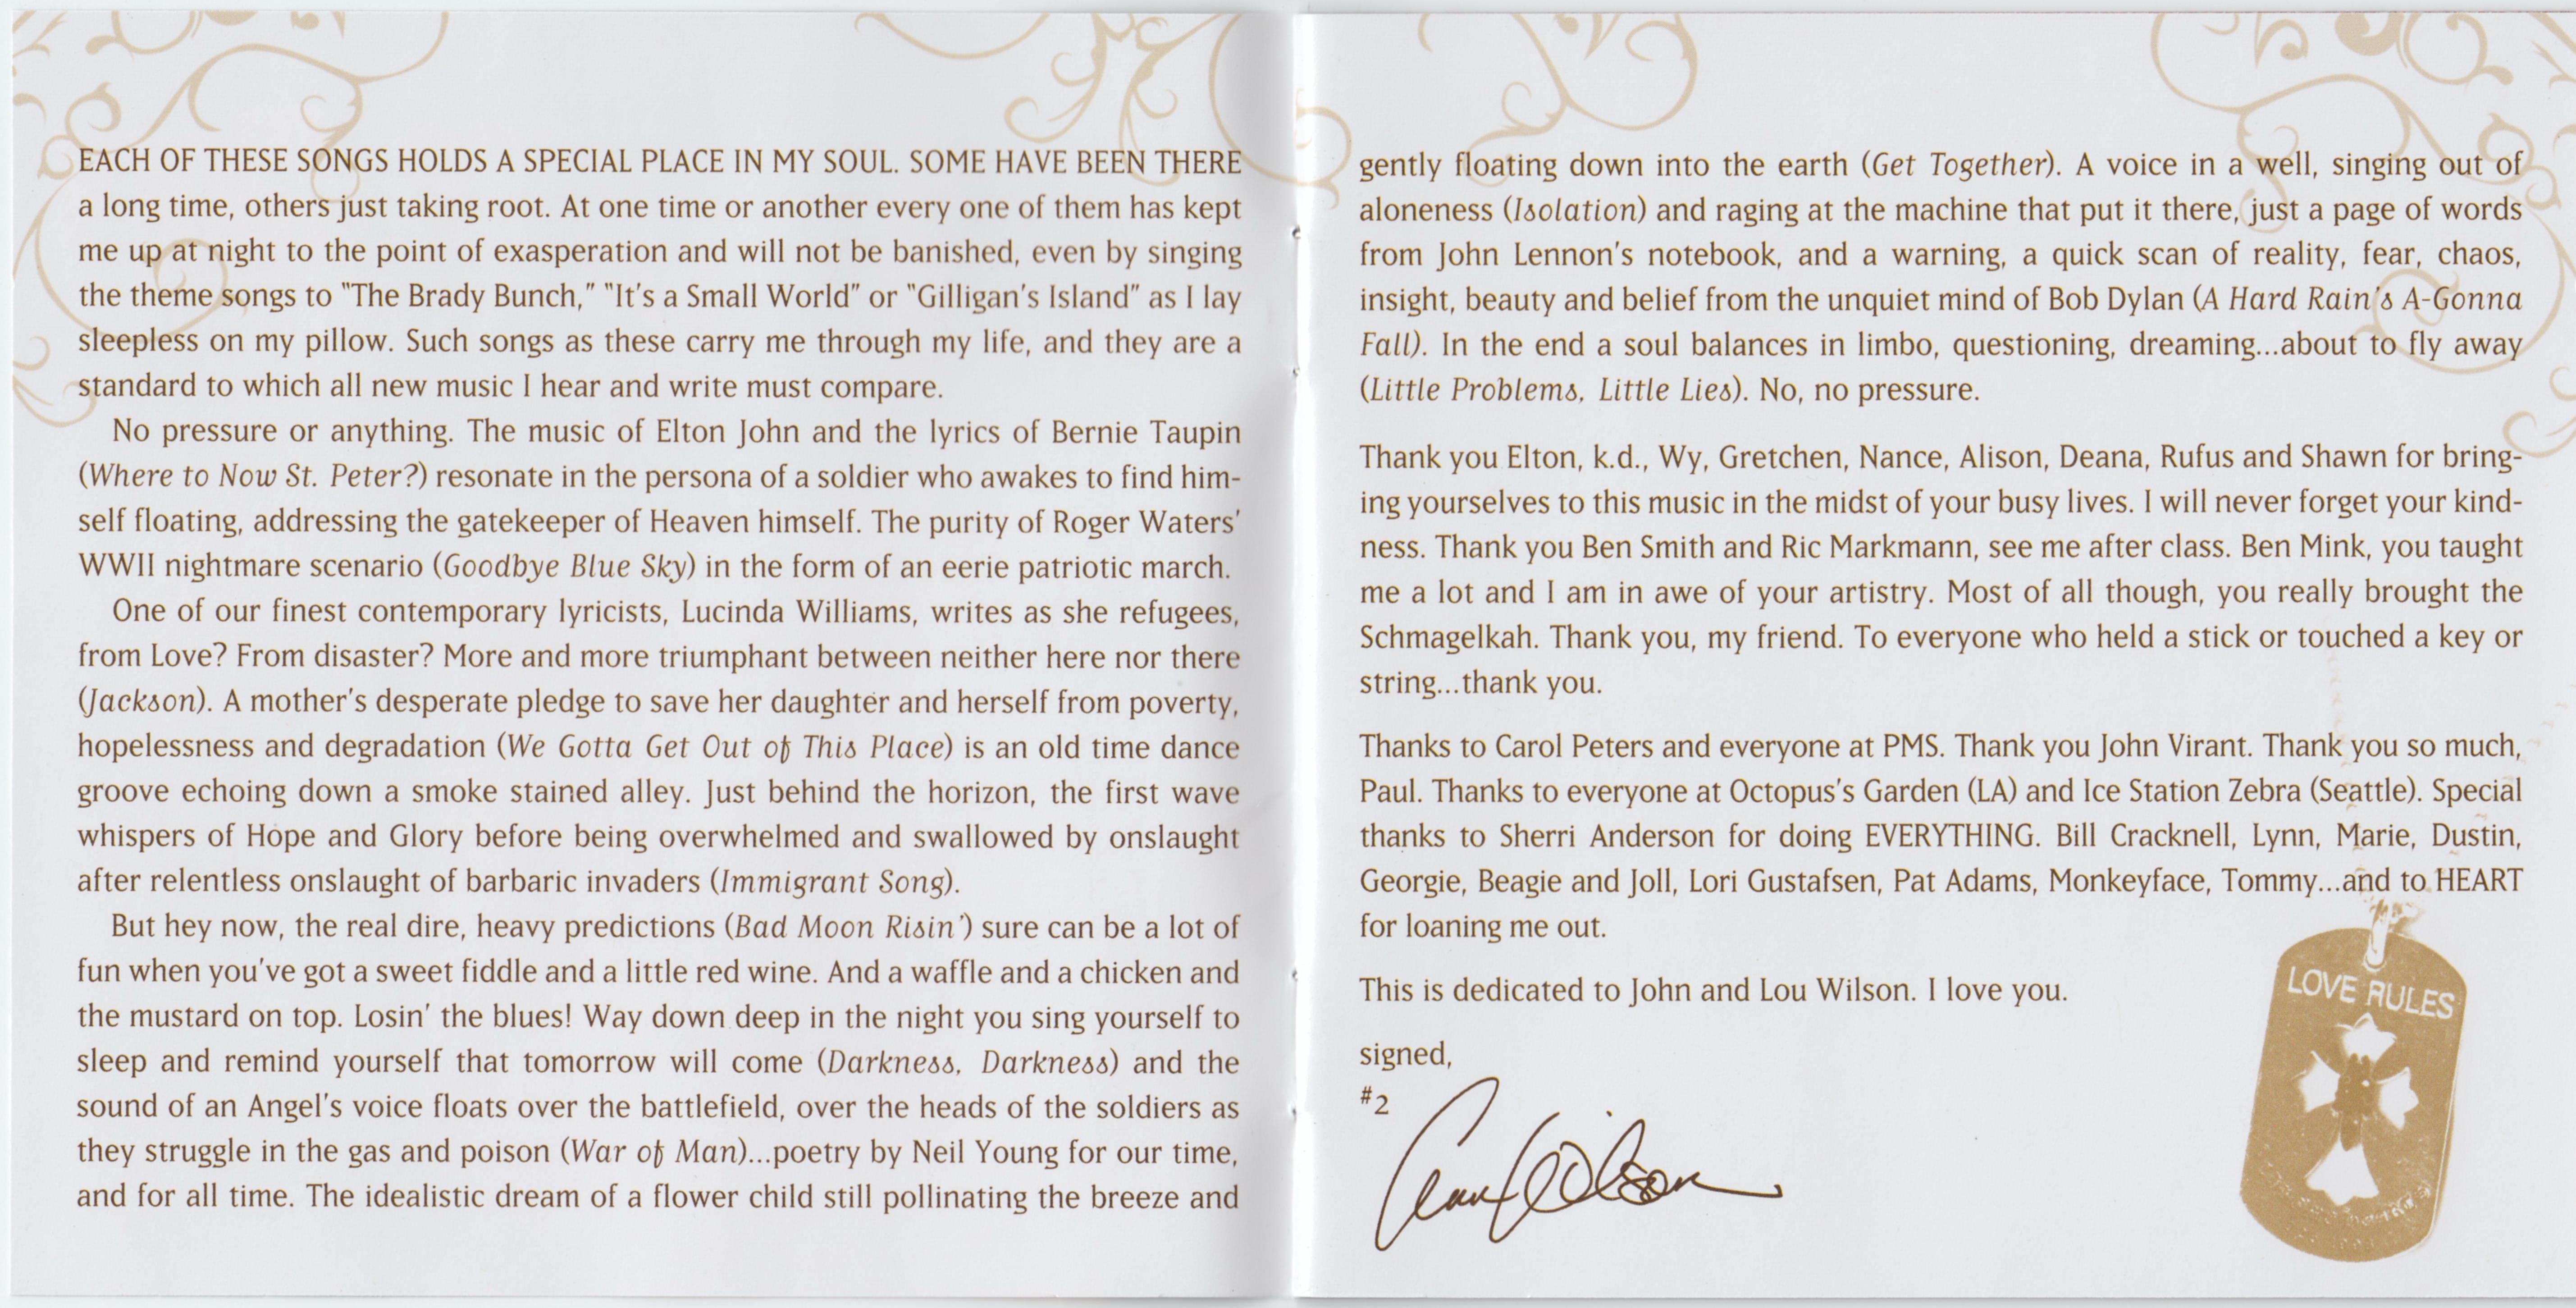 EACH OF THESE SONGS HOLDS A SPECIAL PLACE IN MY SOUL. SOME HAVE BEEN THERE
a long time, others just taking root. At one time or another every one of them has kept
me up at night to the point of exasperation and will not be banished, even by singing
the theme songs to "The Brady Bunch," "It's a Small World" or "Gilligan's Island" as I lay
sleepless on my pillow. Such songs as these carry me through my life, and they are a
standard to which all new music I hear and write must compare.
No pressure or anything. The music of Elton John and the lyrics of Bernie Taupin
(Where to Now St. Peter?) resonate in the persona of a soldier who awakes to find him-
self floating, addressing the gatekeeper of Heaven himself. The purity of Roger Waters'
WWII nightmare scenario (Goodbye Blue Sky) in the form of an eerie patriotic march.
One of our finest contemporary lyricists, Lucinda Williams, writes as she refugees,
from Love? From disaster? More and more triumphant between neither here nor there
(Jackson). A mother's desperate pledge to save her daughter and herself from poverty,
hopelessness and degradation (We Gotta Get Out of This Place) is an old time dance
groove echoing down a smoke stained alley. Just behind the horizon, the first wave
whispers of Hope and Glory before being overwhelmed and swallowed by onslaught
after relentless onslaught of barbaric invaders (Immigrant Song).
But hey now, the real dire, heavy predictions (Bad Moon Risin') sure can be a lot of
fun when you've got a sweet fiddle and a little red wine. And a waffle and a chicken and
the mustard on top. Losin' the blues! Way down deep in the night you sing yourself to
sleep and remind yourself that tomorrow will come (Darkness, Darkness) and the
sound of an Angel's voice floats over the battlefield, over the heads of the soldiers as
they struggle in the gas and poison (War of Man)...poetry by Neil Young for our time,
and for all time. The idealistic dream of a flower child still pollinating the breeze and
gently floating down into the earth (Get Together). A voice in a well, singing out of
aloneness (Isolation) and raging at the machine that put it there, just a page of words
from John Lennon's notebook, and a warning, a quick scan of reality, fear, chaos,
insight, beauty and belief from the unquiet mind of Bob Dylan (A Hard Rain's A-Gonna
Fall). In the end a soul balances in limbo, questioning, dreaming...about to fly away
(Little Problems, Little Lies). No, no pressure.
Thank you Elton, k.d., Wy, Gretchen, Nance, Alison, Deana, Rufus and Shawn for bring-
ing yourselves to this music in the midst of your busy lives. I will never forget your kind-
ness. Thank you Ben Smith and Ric Markmann, see me after class. Ben Mink, you taught
me a lot and I am in awe of your artistry. Most of all though, you really brought the
Schmagelkah. Thank you, my friend. To everyone who held a stick or touched a key or
string...thank you.
Thanks to Carol Peters and everyone at PMS. Thank you John Virant. Thank you so much,
Paul. Thanks to everyone at Octopus's Garden (LA) and Ice Station Zebra (Seattle). Special
thanks to Sherri Anderson for doing EVERYTHING. Bill Cracknell, Lynn, Marie, Dustin,
Georgie, Beagie and Joll, Lori Gustafsen, Pat Adams, Monkeyface, Tommy...and to HEART
for loaning me out.
This is dedicated to John and Lou Wilson. I love you.
signed,
#2
Ann Wilson
LOVE RULES